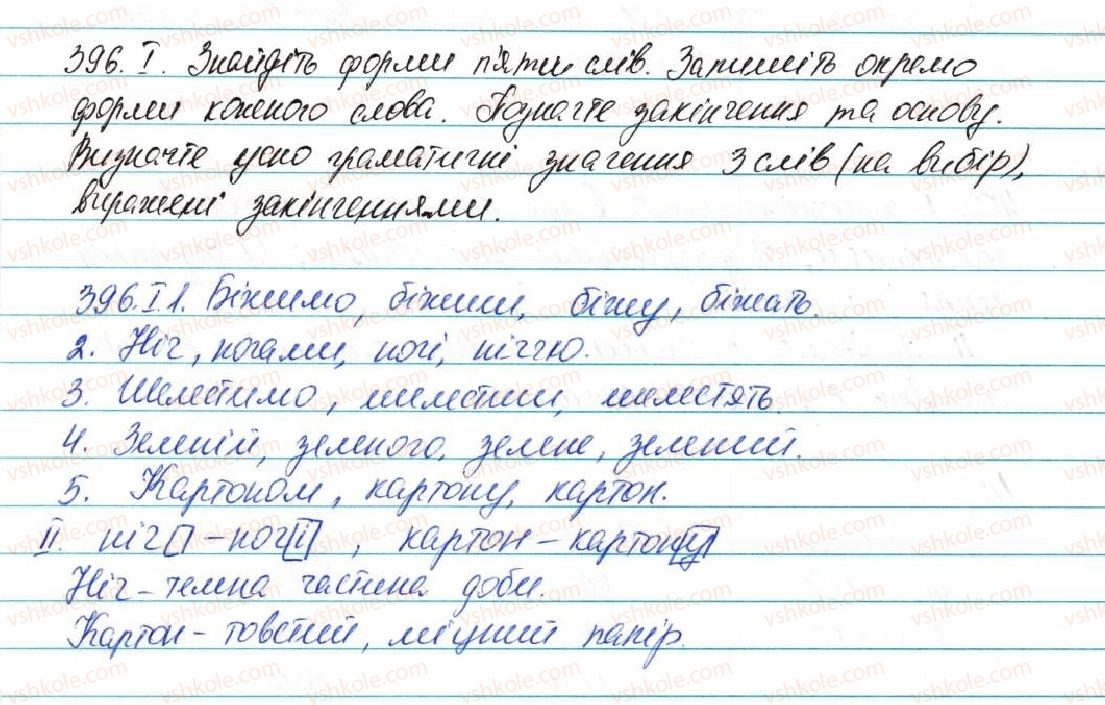 396. I. Знайдіть форми п'яти слів. Запишіть окремо
форми кожного слова. Позначте закінчення та основу.
Визначте усно граматичні значення 3 слів (на вибір),
виражені закінченнями.
396. I. 1. Біжимо, біжиш, біжу, біжать.
2. Ніч, ночами, ночі, ніччю.
3. Шелестимо, шелестиш, шелестять.
4. Зеленій, зеленого, зелене, зелений.
5. Картоном, картону, картон.
II. ніч - ночі, картон - картону
Ніч - темна частина доби.
Картон - товстий, міцний папір.